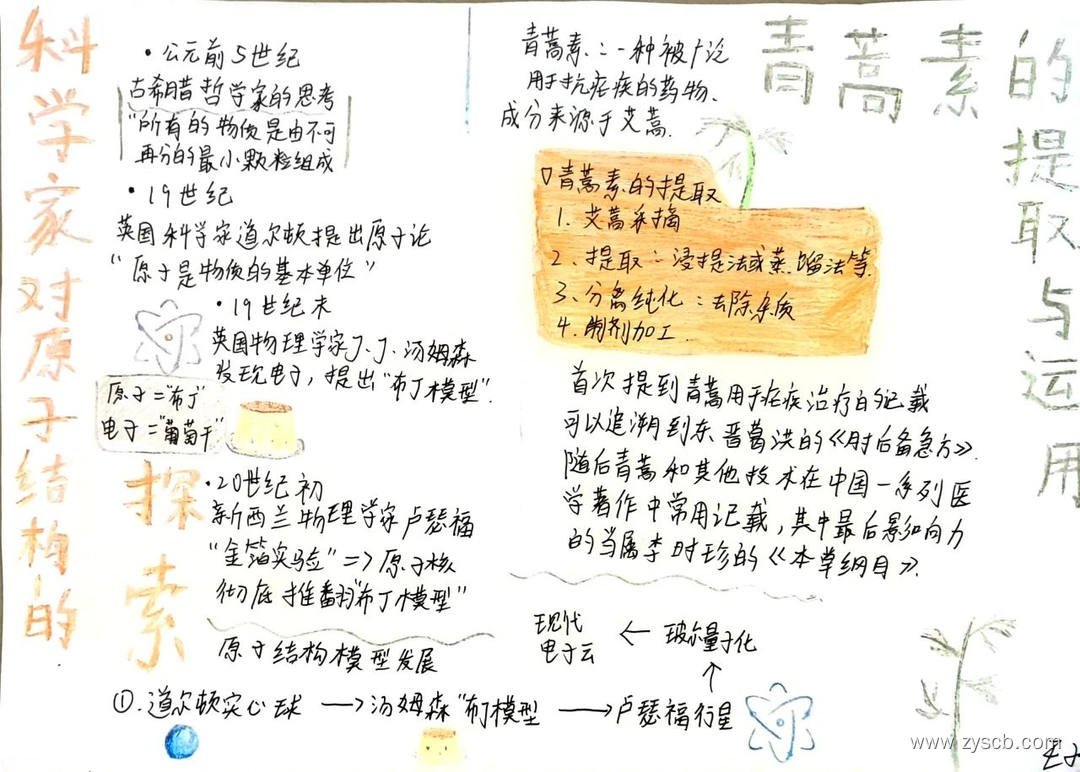 科学家对原子结构的
探索
• 公元前5世纪
古希腊哲学家的思考
"所有的物质是由不可
再分的最小颗粒组成
• 19世纪
英国科学家道尔顿提出原子论
"原子是物质的基本单位"
• 19世纪末
英国物理学家J.J.汤姆森
发现电子，提出"布丁模型".
原子="布丁"
电子="葡萄干"
• 20世纪初
新西兰物理学家卢瑟福
"金箔实验" => 原子核
彻底推翻"布丁模型"
原子结构模型发展
①. 道尔顿实心球 → 汤姆森"布丁模型 → 卢瑟福行星
↑
玻尔量子化
←
现代
电子云
青蒿素的提取与运用
青蒿素：一种被广泛
用于抗疟疾的药物、
成分来源于艾蒿.
青蒿素的提取
1. 艾蒿采摘
2. 提取：浸提法或蒸馏法等.
3. 分离纯化：去除杂质
4. 制剂加工.
首次提到青蒿用于疟疾治疗的记载
可以追溯到东晋葛洪的《肘后备急方》.
随后青蒿和其他技术在中国一系列医
学著作中常用记载，其中最后影响力
的当属李时珍的《本草纲目》.
www.zyscb.com